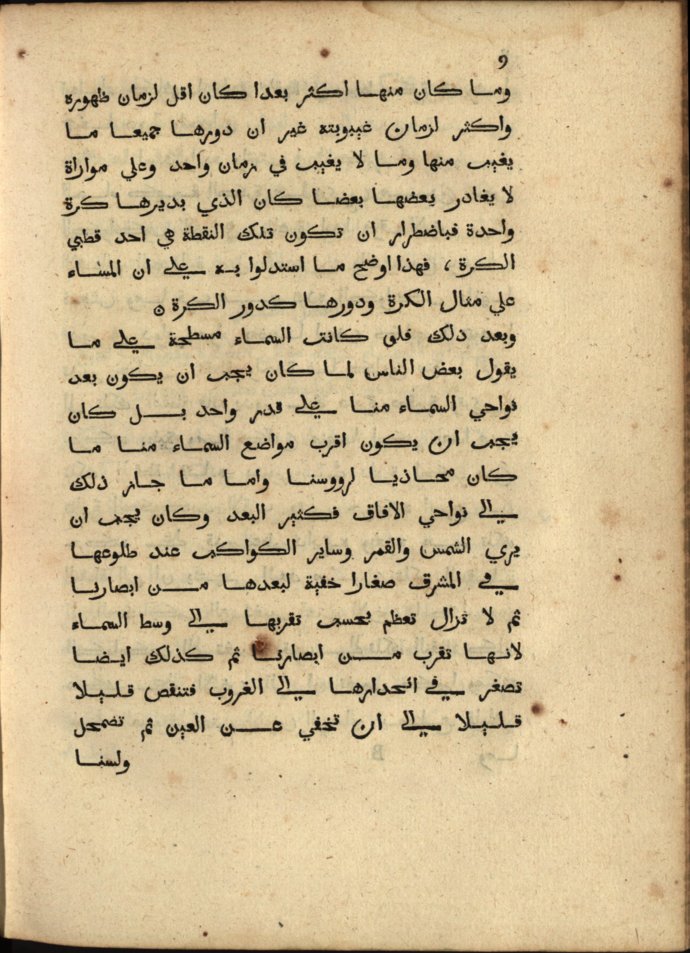 9
وما كان منها اكثر بعدا كان اقل لزمان ظهوره
واكثر لزمان غيبوبته غير ان دورها جميعا ما
يغيب منها وما لا يغيب في زمان واحد وعلي موازاة
لا يغادر بعضها بعضا كان الذي يديرها كرة
واحدة فباضطرار ان تكون تلك النقطة هي احد قطبي
الكرة ، فهذا اوضح ما استدلوا به علي ان السماء
علي مثال الكرة ودورها كدور الكرة ه
وبعد ذلك فلو كانت السماء مسطحة علي ما
يقول بعض الناس لما كان يجب ان يكون بعد
نواحي السماء منا علي قدر واحد بل كان
يجب ان يكون اقرب مواضع السماء منا ما
كان محاذيا لرووسنا واما ما جاز ذلك
الي نواحي الافاق فكثير البعد وكان يجب ان
يري الشمس والقمر وساير الكواكب عند طلوعها
في المشرق صغارا خفية لبعدها من ابصارنا
ثم لا تزال تعظم بحسب تقربها الي وسط السماء
لانها تقرب من ابصارنا ثم كذلك ايضا
تصغر في انحدارها الي الغروب فتنقص قليلا
قليلا الي ان تخفي عن العين ثم تضمحل
ولسنا